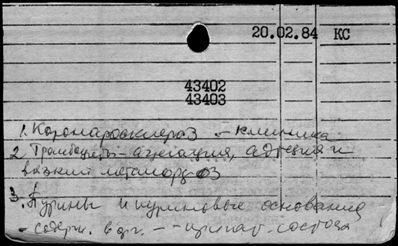 20.02.84 КС
43402
43403
1. Коронаросклероз - клиника
2. Тромбоциты - агрегация, адгезия и
вязкий метаморфоз
3. Пурины и пуриновые основания
- содерж. в орг. -